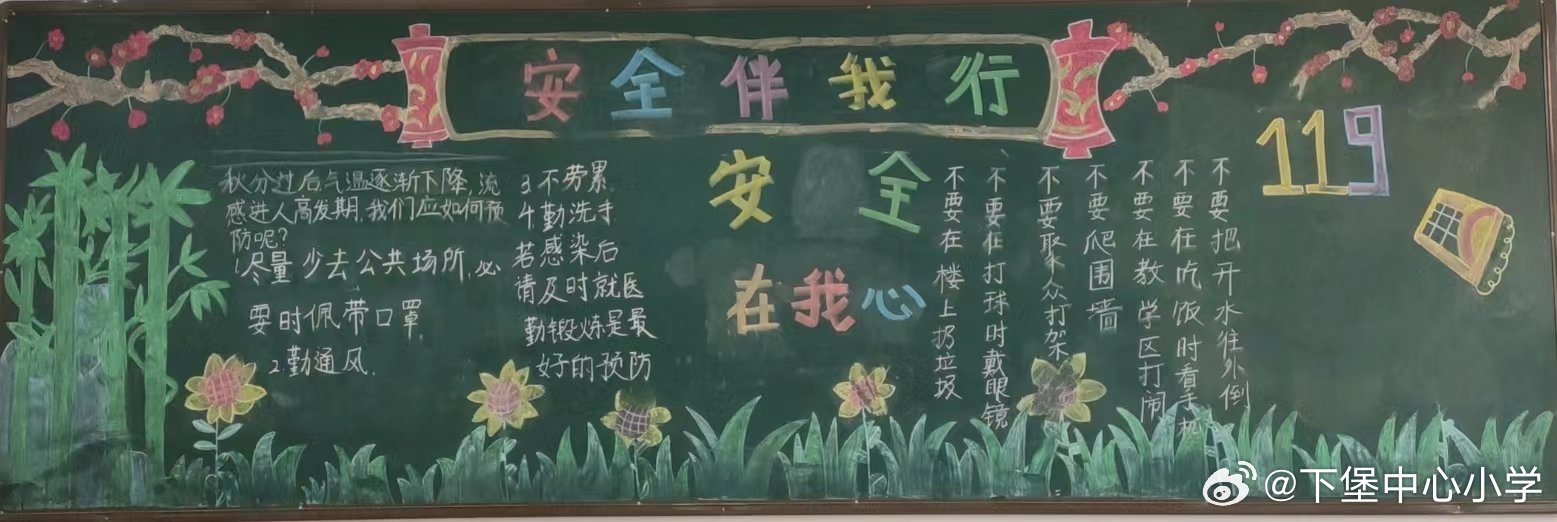 安全伴我行
秋分过后气温逐渐下降,流
感进人高发期,我们应如何预
防呢?
1尽量少去公共场所,必
要时佩带口罩.
2.勤通风.
3不劳累
4.勤洗手
若感染后
请及时就医
勤锻炼是最
好的预防
安全
在我心
不要把开水往外倒
不要在吃饭时看手机
不要在教学区打闹
不要爬围墙
不要聚众打架
不要在打球时戴眼镜
不要在楼上扔垃圾
119
@下堡中心小学